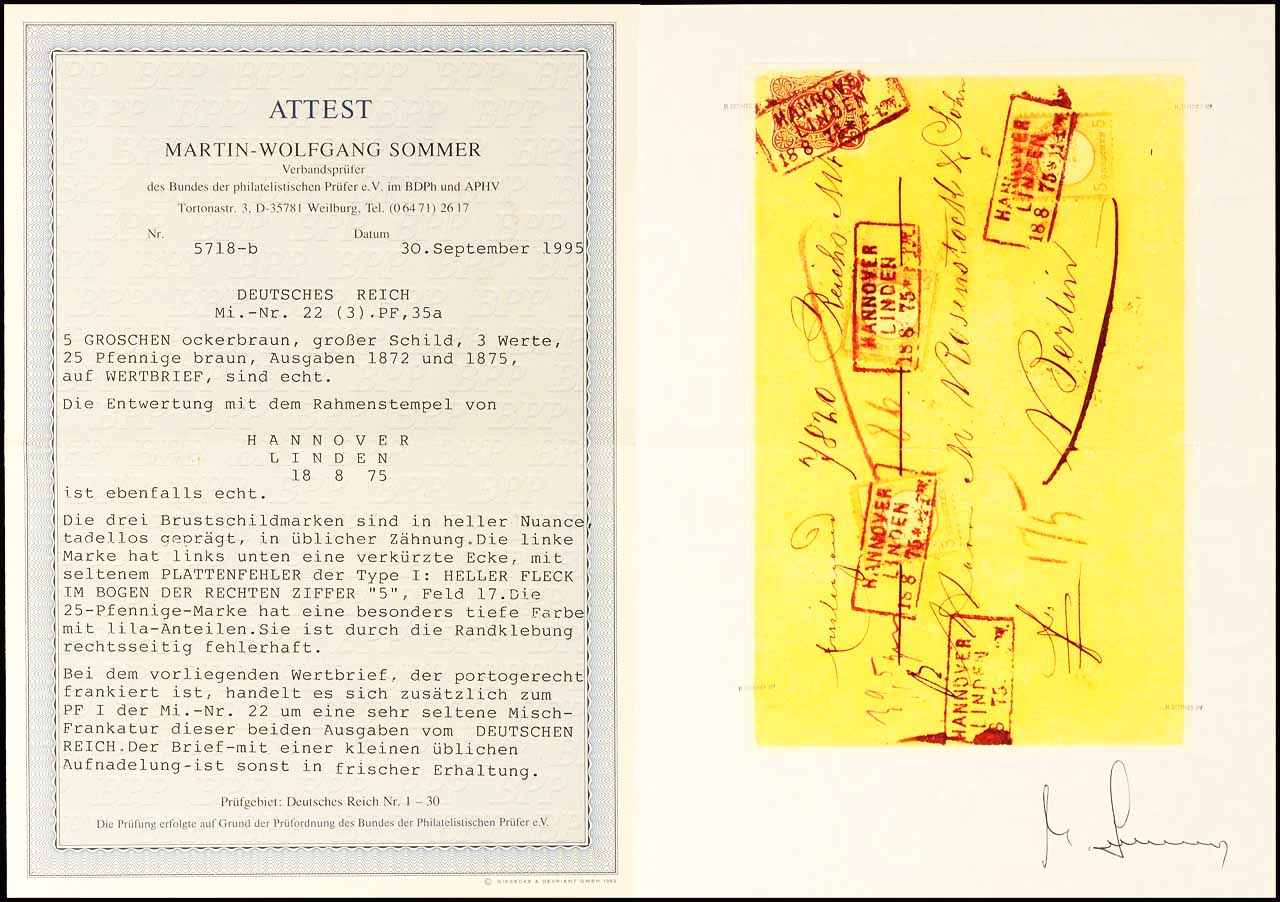 ATTEST
MARTIN-WOLFGANG SOMMER
Verbandsprüfer
des Bundes der philatelistischen Prüfer e.V. im BDPh und APHV
Tortonastr. 3, D-35781 Weilburg, Tel. (06471) 2617
Nr. Datum
5718-b 30.September 1995
DEUTSCHES REICH
Mi.-Nr. 22 (3).PF,35a
5 GROSCHEN ockerbraun, großer Schild, 3 Werte,
25 Pfennige braun, Ausgaben 1872 und 1875,
auf WERTBRIEF, sind echt.
Die Entwertung mit dem Rahmenstempel von
H A N N O V E R
L I N D E N
18 8 75
ist ebenfalls echt.
Die drei Brustschildmarken sind in heller Nuance,
tadellos geprägt, in üblicher Zähnung.Die linke
Marke hat links unten eine verkürzte Ecke, mit
seltenem PLATTENFEHLER der Type I: HELLER FLECK
IM BOGEN DER RECHTEN ZIFFER "5", Feld 17.Die
25-Pfennige-Marke hat eine besonders tiefe Farbe
mit lila-Anteilen.Sie ist durch die Randklebung
rechtsseitig fehlerhaft.
Bei dem vorliegenden Wertbrief, der portogerecht
frankiert ist, handelt es sich zusätzlich zum
PF I der Mi.-Nr. 22 um eine sehr seltene Misch-
Frankatur dieser beiden Ausgaben vom DEUTSCHEN
REICH.Der Brief-mit einer kleinen üblichen
Aufnadelung-ist sonst in frischer Erhaltung.
Prüfgebiet: Deutsches Reich Nr. 1 – 30
Die Prüfung erfolgte auf Grund der Prüfordnung des Bundes der Philatelistischen Prüfer e.V.
© GIESECKE & DEVRIENT GMBH 1992
HANNOVER
LINDEN
18 8 75
HANNOVER
LINDEN
18 8 75
HANNOVER
LINDEN
18 8 75
HANNOVER
LINDEN
18 8 75
HANNOVER
LINDEN
8 75
7820 Reichs
Herrn M. Rosenstock & Sohn
Berlin
175